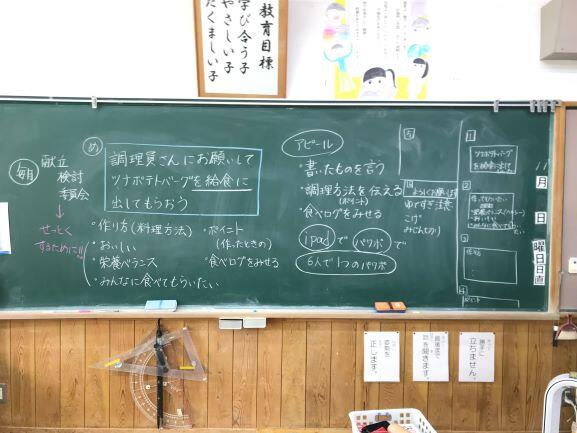 教育目標
学び合う子
やさしい子
たくましい子
毎月
献立
検討
委員会
せっとく
するために!!
め
調理員さんにお願いして
ツナポテトバーグを給食に
出してもらおう
・作り方(料理方法)
・おいしい
・栄養バランス
・みんなに食べてもらいたい
・ポイント
(作ったときの)
・食べログをみせる
アピール
・書いたものを言う
・調理方法を伝える
(ポイント)
・食べログをみせる
ipadでパワポで
6人で1つのパワポ
5
ゆですぎ注意
こげ
みじん切り
1
ツナポテトバーグ
を給食に
2
3
4
ポイント
11
月
日
曜日
日直
姿勢を
正します。
話を聞きます。
勝手に
立ちません。